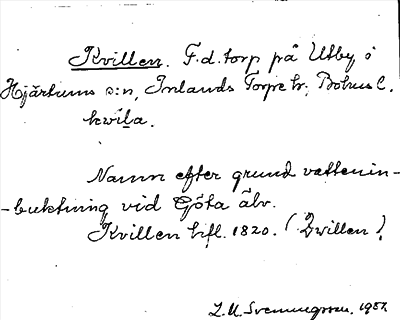 Kvillen. F.d. torp på Utby, i
Hjärtums s:n, Inlands Torpe hr; Bohus l.
kvila.
Namn efter grund vattenin-
-buktning vid Göta älv.
Kvillen hfl. 1820. (Qwillen?)
L.U. Svenungsson. 1951.